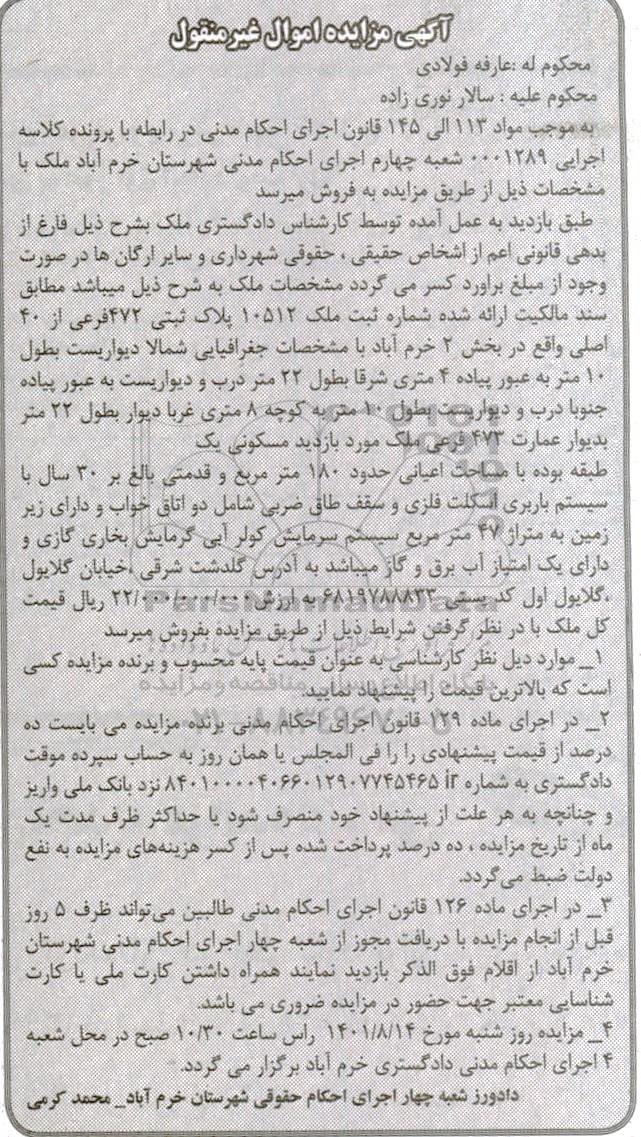 آگهی مزایده اموال غیرمنقول
محکوم له :عارفه فولادی
محکوم علیه : سالار نوری زاده
به موجب مواد ۱۱۳ الی ۱۴۵ قانون اجرای احکام مدنی در رابطه با پرونده کلاسه
اجرایی ۰۰۰۱۲۸۹ شعبه چهارم اجرای احکام مدنی شهرستان خرم آباد ملک با
مشخصات ذیل از طریق مزایده به فروش میرسد
طبق بازدید به عمل آمده توسط کارشناس دادگستری ملک بشرح ذیل فارغ از
بدهی قانونی اعم از اشخاص حقیقی ، حقوقی شهرداری و سایر ارگان ها در صورت
وجود از مبلغ براورد کسر می گردد مشخصات ملک به شرح ذیل میباشد مطابق
سند مالکیت ارائه شده شماره ثبت ملک ۱۰۵۱۲ پلاک ثبتی ۴۷۲فرعی از ۴۰
اصلی واقع در بخش ۲ خرم آباد با مشخصات جغرافیایی شمالا دیواریست بطول
۱۰ متر به عبور پیاده ۴ متری شرقا بطول ۲۲ متر درب و دیواریست به عبور پیاده
جنوبا درب و دیواریست بطول ۱۰ متر به کوچه ۸ متری غربا دیوار بطول ۲۲ متر
بدیوار عمارت ۴۷۳ فرعی ملک مورد بازدید مسکونی یک
طبقه بوده با مساحت اعیانی حدود ۱۸۰ متر مربع و قدمتی بالغ بر ۳۰ سال با
سیستم باربری اسکلت فلزی و سقف طاق ضربی شامل دو اتاق خواب و دارای زیر
زمین به متراژ ۴۷ متر مربع سیستم سرمایش کولر آبی گرمایش بخاری گازی و
دارای یک امتیاز آب برق و گاز میباشد به آدرس گلدشت شرقی ،خیابان گلایول
،گلایول اول کد پستی ۶۸۱۹۷۸۸۸۳۳ به ارزش ۲۲/۰۰۰/۰۰۰/۰۰۰ ریال قیمت
کل ملک با در نظر گرفتن شرایط ذیل از طریق مزایده بفروش میرسد
۱_ موارد ذیل نظر کارشناسی به عنوان قیمت پایه محسوب و برنده مزایده کسی
است که بالاترین قیمت را پیشنهاد نماید.
۲_ در اجرای ماده ۱۲۹ قانون اجرای احکام مدنی برنده مزایده می بایست ده
درصد از قیمت پیشنهادی را را فی المجلس یا همان روز به حساب سپرده موقت
دادگستری به شماره ir ۸۴۰۱۰۰۰۰۴۰۶۶۰۱۲۹۰۷۷۴۵۴۶۵ نزد بانک ملی واریز
و چنانچه به هر علت از پیشنهاد خود منصرف شود یا حداکثر ظرف مدت یک
ماه از تاریخ مزایده ، ده درصد پرداخت شده پس از کسر هزینه‌های مزایده به نفع
دولت ضبط می‌گردد.
۳_ در اجرای ماده ۱۲۶ قانون اجرای احکام مدنی طالبین می‌تواند ظرف ۵ روز
قبل از انجام مزایده با دریافت مجوز از شعبه چهار اجرای احکام مدنی شهرستان
خرم آباد از اقلام فوق الذکر بازدید نمایند همراه داشتن کارت ملی یا کارت
شناسایی معتبر جهت حضور در مزایده ضروری می باشد.
۴_ مزایده روز شنبه مورخ ۱۴۰۱/۸/۱۴ راس ساعت ۱۰/۳۰ صبح در محل شعبه
۴ اجرای احکام مدنی دادگستری خرم آباد برگزار می گردد.
دادورز شعبه چهار اجرای احکام حقوقی شهرستان خرم آباد_ محمد کرمی
ParsNamadData